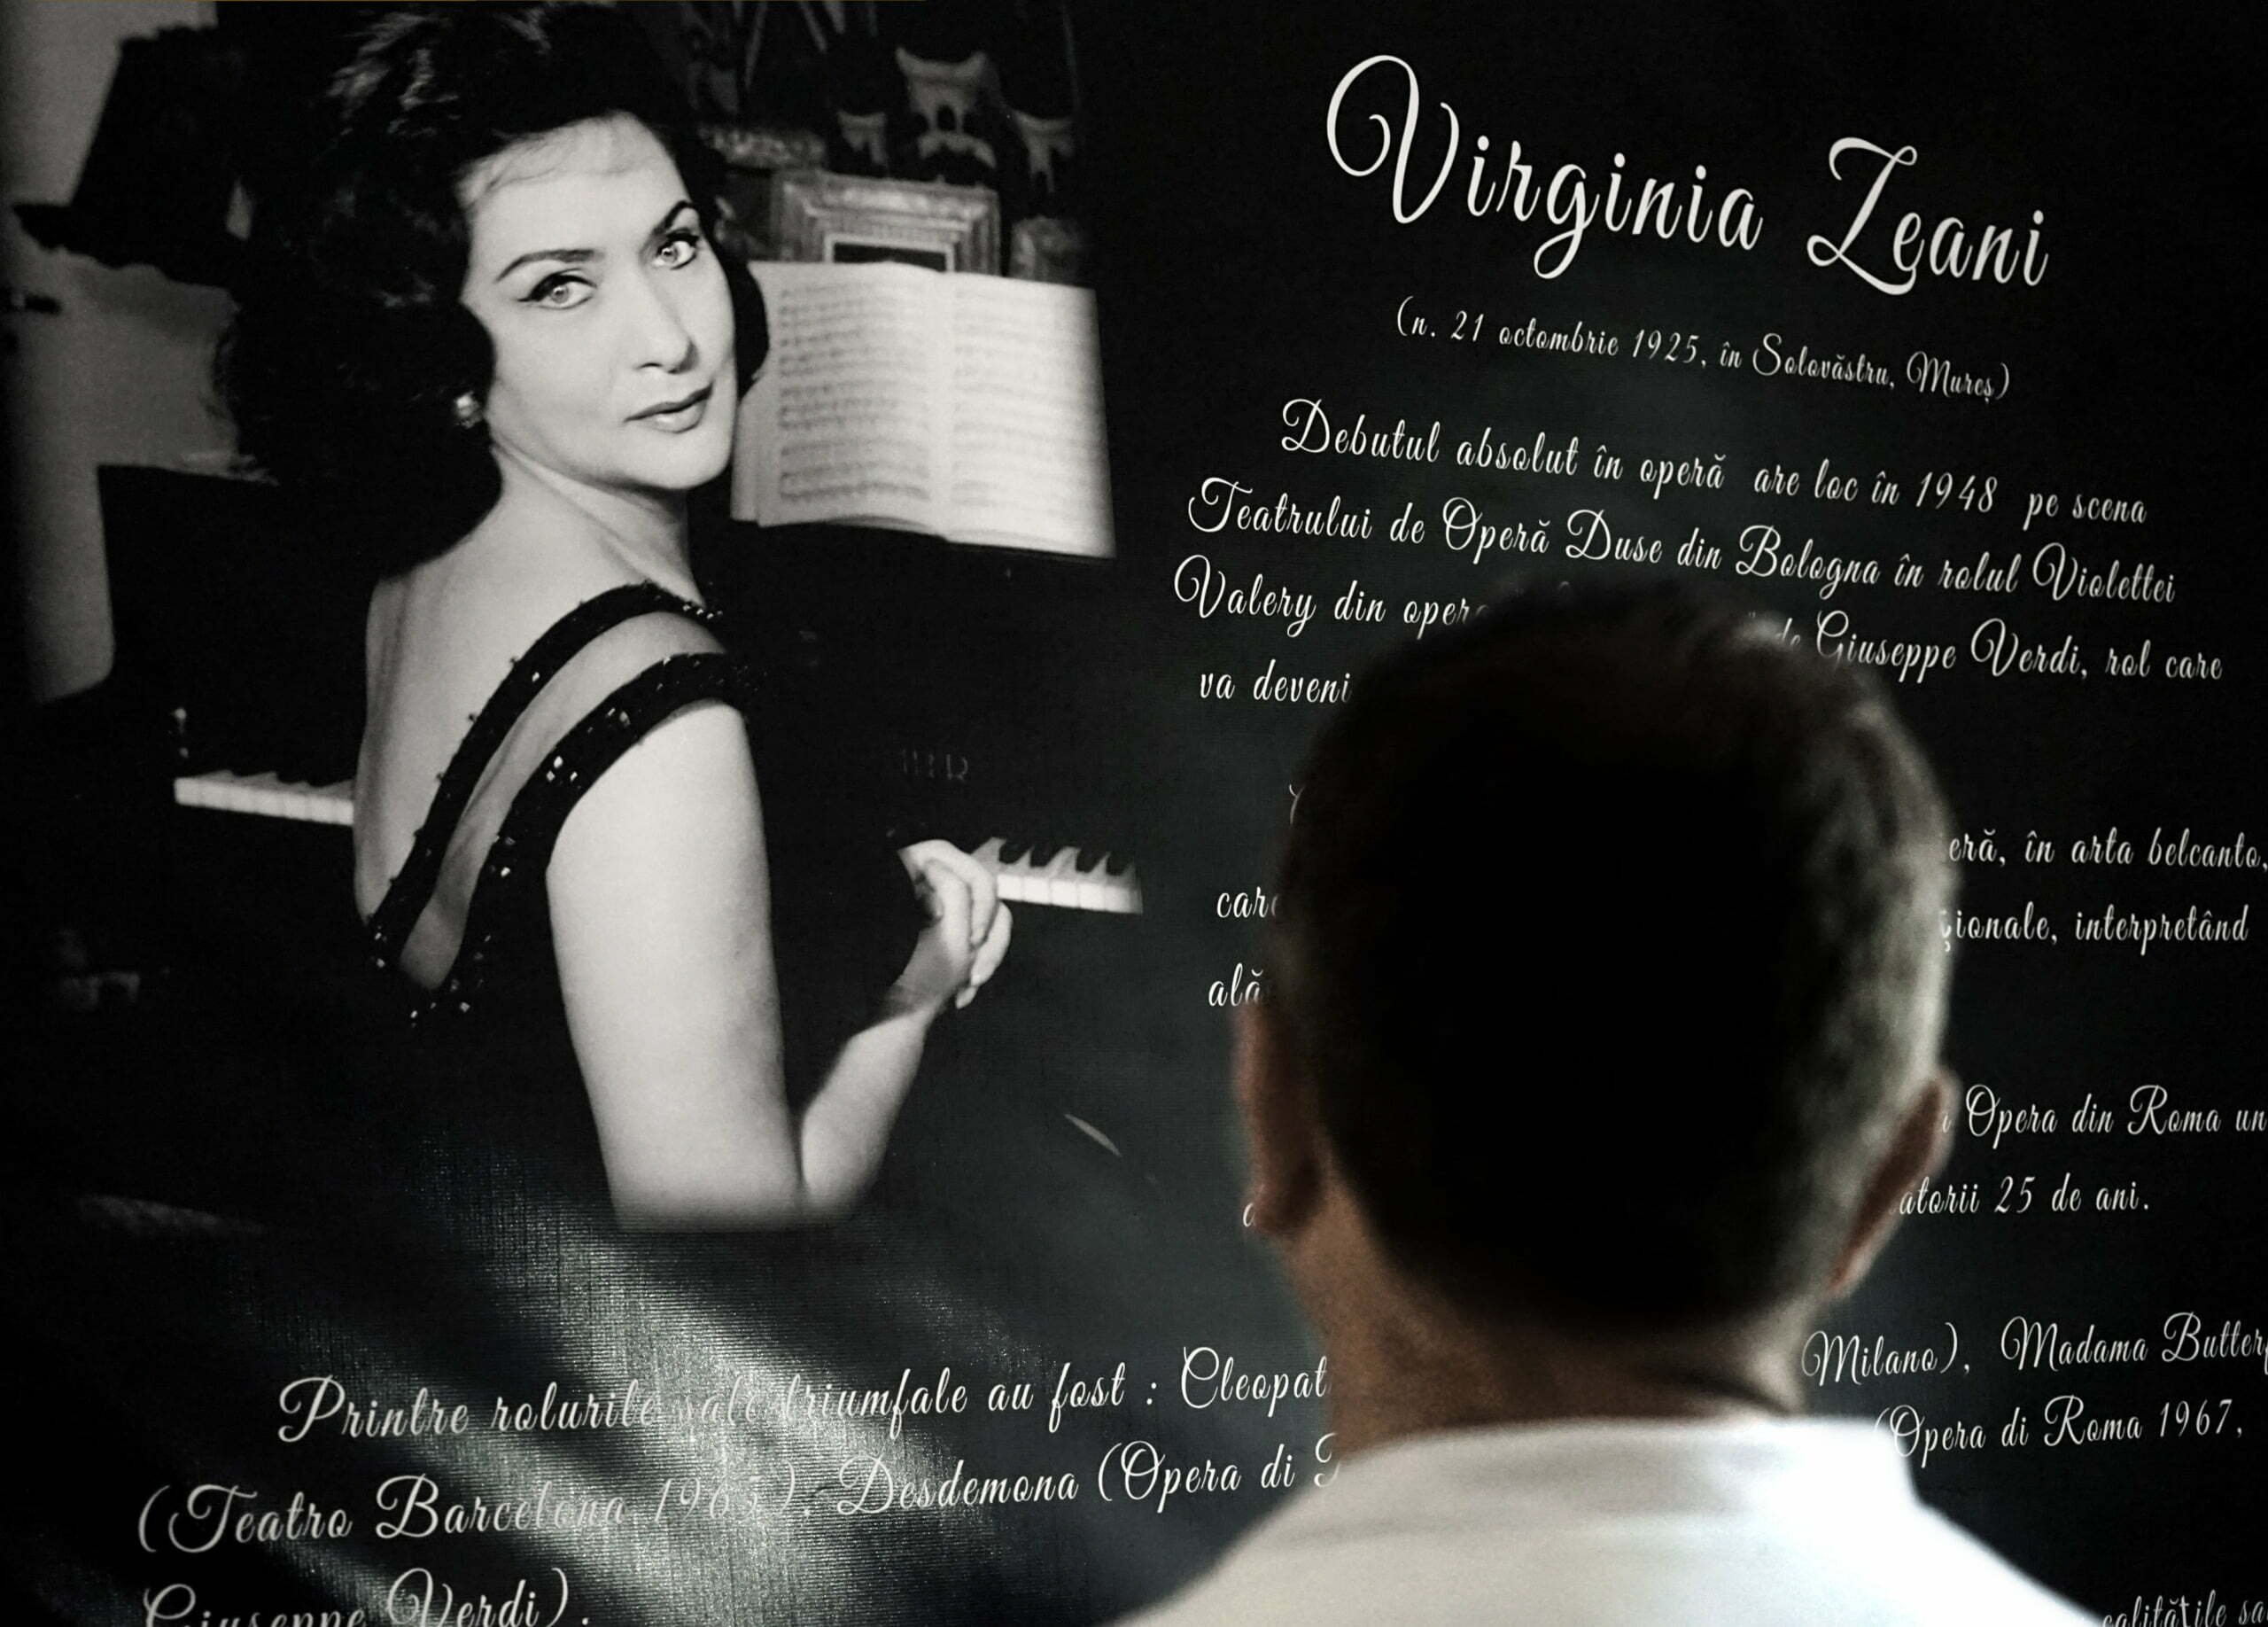 Virginia Zeani
(n. 21 octombrie 1925, în Solovăstru, Mureș)
Debutul absolut în operă are loc în 1948 pe scena
Teatrului de Operă Duse din Bologna în rolul Violettei
Valery din oper de Giuseppe Verdi, rol care
va deveni
eră, în arta belcanto,
care ționale, interpretând
ală
Opera din Roma un
atorii 25 de ani.
Printre rolurile sale triumfale au fost : Cleopat Milano), Madama Butterf
(Teatro Barcelona 1965), Desdemona (Opera di (Opera di Roma 1967,
Giuseppe Verdi).
calitățile sa